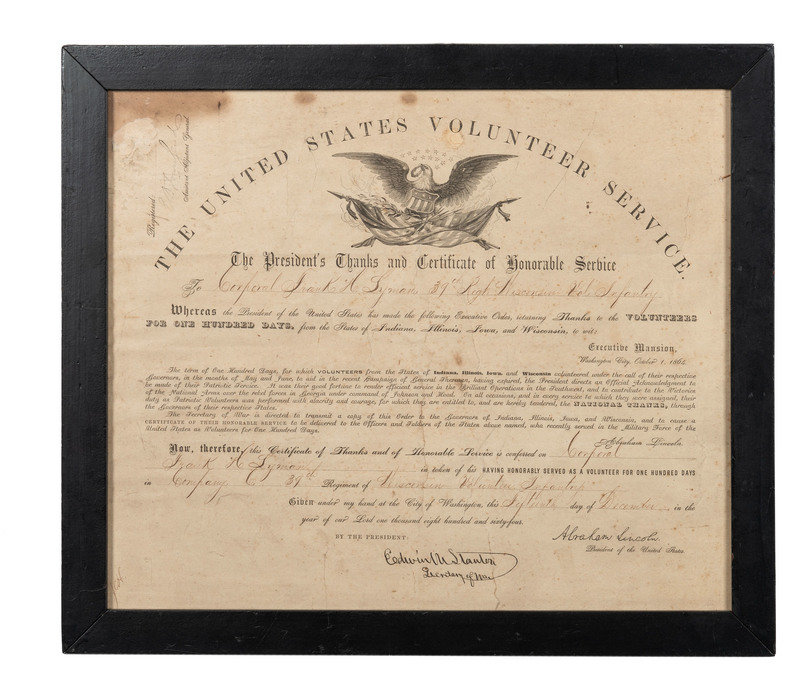 THE UNITED STATES VOLUNTEER SERVICE.
The President's Thanks and Certificate of Honorable Service
To Corporal Frank H Lyman 39th Regt Wisconsin Vol. Infantry
Whereas the President of the United States has made the following Executive Order, returning Thanks to the VOLUNTEERS
FOR ONE HUNDRED DAYS, from the States of Indiana, Illinois, Iowa, and Wisconsin, to wit:
Executive Mansion,
Washington City, October 1, 1864.
The term of One Hundred Days, for which VOLUNTEERS from the States of Indiana, Illinois, Iowa, and Wisconsin volunteered under the call of their respective
Governors, in the months of May and June, to aid in the recent Campaign of General Sherman, having expired, the President directs an Official Acknowledgment to
be made of their Patriotic Service. It was their good fortune to render efficient service in the Brilliant Operations in the Southwest, and to contribute to the Victories
of the National Arms over the rebel forces in Georgia under command of Johnson and Hood. On all occasions, and in every service to which they were assigned, their
duty as Patriotic Volunteers was performed with alacrity and courage, for which they are entitled to, and are hereby tendered, the NATIONAL THANKS, through
the Governors of their respective States.
The Secretary of War is directed to transmit a copy of this Order to the Governors of Indiana, Illinois, Iowa, and Wisconsin, and to cause a
CERTIFICATE OF THEIR HONORABLE SERVICE to be delivered to the Officers and Soldiers of the States above named, who recently served in the Military Force of the
United States as Volunteers for One Hundred Days.
Abraham Lincoln.
Now, therefore, this Certificate of Thanks and of Honorable Service is conferred on Corporal
Frank H Lyman in token of his HAVING HONORABLY SERVED AS A VOLUNTEER FOR ONE HUNDRED DAYS
in Company C. 39th Regiment of Wisconsin Volunteer Infantry
Given under my hand at the City of Washington, this Fifteenth day of December in the
year of our Lord one thousand eight hundred and sixty-four.
BY THE PRESIDENT:
Abraham Lincoln.
President of the United States.
Edwin M Stanton
Secretary of War
Registered,
Assistant Adjutant General.